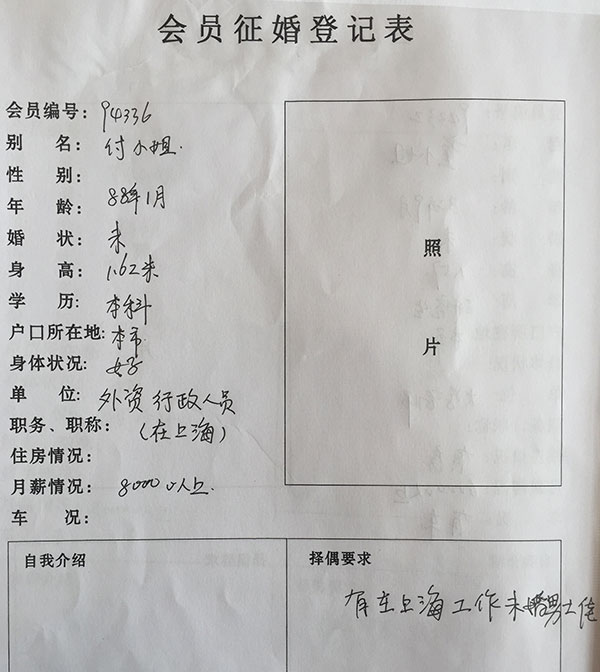 会员征婚登记表
会员编号: 94336
别 名: 付小姐.
性 别:
年 龄: 88年1月
婚 状: 未
身 高: 1.62米
学 历: 本科
户口所在地: 本市
身体状况: 好
单 位: 外资 行政人员
职务、职称: (在上海)
住房情况:
月薪情况: 8000以上.
车 况:
照
片
自我介绍
择偶要求
有在上海工作未婚男士